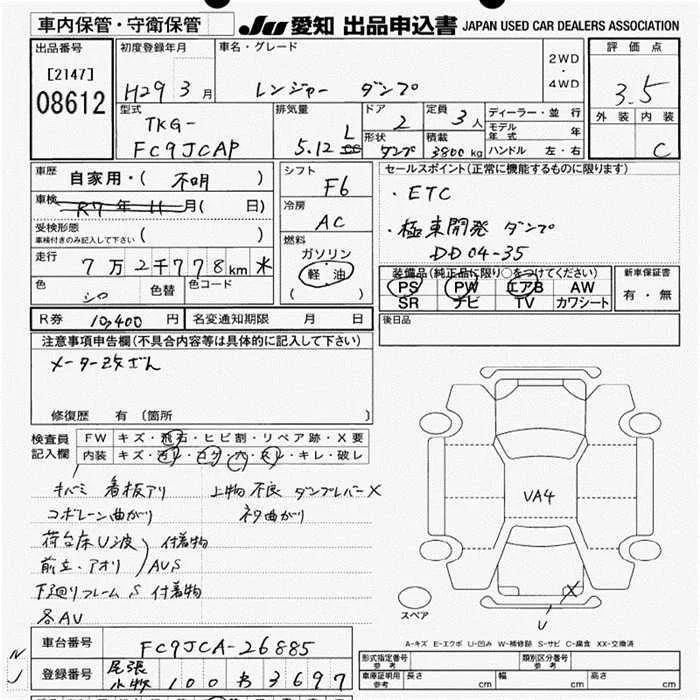 車内保管・守衛保管
JU 愛知 出品申込書 JAPAN USED CAR DEALERS ASSOCIATION
出品番号
[2147]
08612
初度登録年月
H29 3月
車名・グレード
レンジャー ダンプ
2WD
・
4WD
評価点
3.5
外装 内装
C
型式
TKG-
FC9JCAP
排気量
5.12 L
ドア
2
形状
ダンプ
定員
3人
積載
3800kg
ディーラー・並行
モデル年式 年
ハンドル 左・右
車歴
自家用・( 不明 )
車検
R7年11月( 日)
受検形態
車検付きのみ記入して下さい ( )
走行
7万2千778km 米
色
シロ
色替
色コード
シフト
F6
冷房
AC
燃料
ガソリン
軽油
( )
セールスポイント(正常に機能するものに限ります)
・ETC
・極東開発 ダンプ
DD04-35
装備品(純正品に限り○をつけてください)
PS PW エアB AW
SR ナビ TV カワシート
新車保証書
有・無
R券 10,400円
名変通知期限 月 日
後日品
注意事項申告欄(不具合内容等は具体的に記入して下さい)
メーター改ざん
修復歴 有〔箇所 〕
検査員記入欄
FW キズ・飛石・ヒビ割・リペア跡・X要
内装 キズ・汚レ・コゲ・穴・スレ・キレ・破レ
キバミ 看板アリ 上物不良 ダンプレバーX
コボレーン曲がり ネタ曲がり
荷台床U波 付着物
前立・アオリ AUS
下廻りフレームS 付着物
各AU
VA4
X
U
スペア
A-キズ E-エクボ U-凹み W-補修跡 S-サビ C-腐食 XX-交換済
車台番号
FC9JCA-26885
登録番号
尾張小牧 100 お 3697
形式指定番号 参考
類別区分番号 参考
車庫証明用 参考 長さ cm 幅 cm 高さ cm